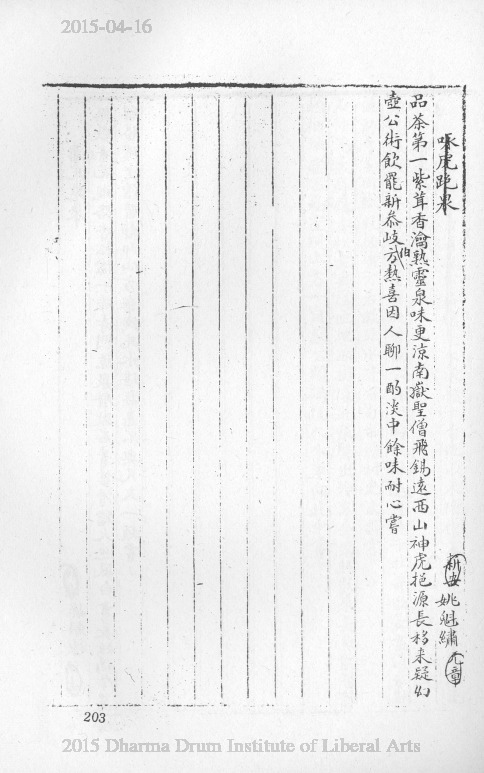 2015-04-16
咏虎跑泉
新安 姚魁繡 元章
品茶第一紫茸香瀹熟靈泉味更涼南嶽聖僧飛錫遠西山神虎抱源長移来疑幻
壺公術飲罷新參岐伯方熱喜因人聊一酌淡中餘味耐心嘗
203
2015 Dharma Drum Institute of Liberal Arts